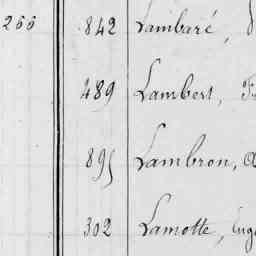 266 842 Lambaré,
489 Lambert,
895 Lambron,
302 Lamotte, Eug